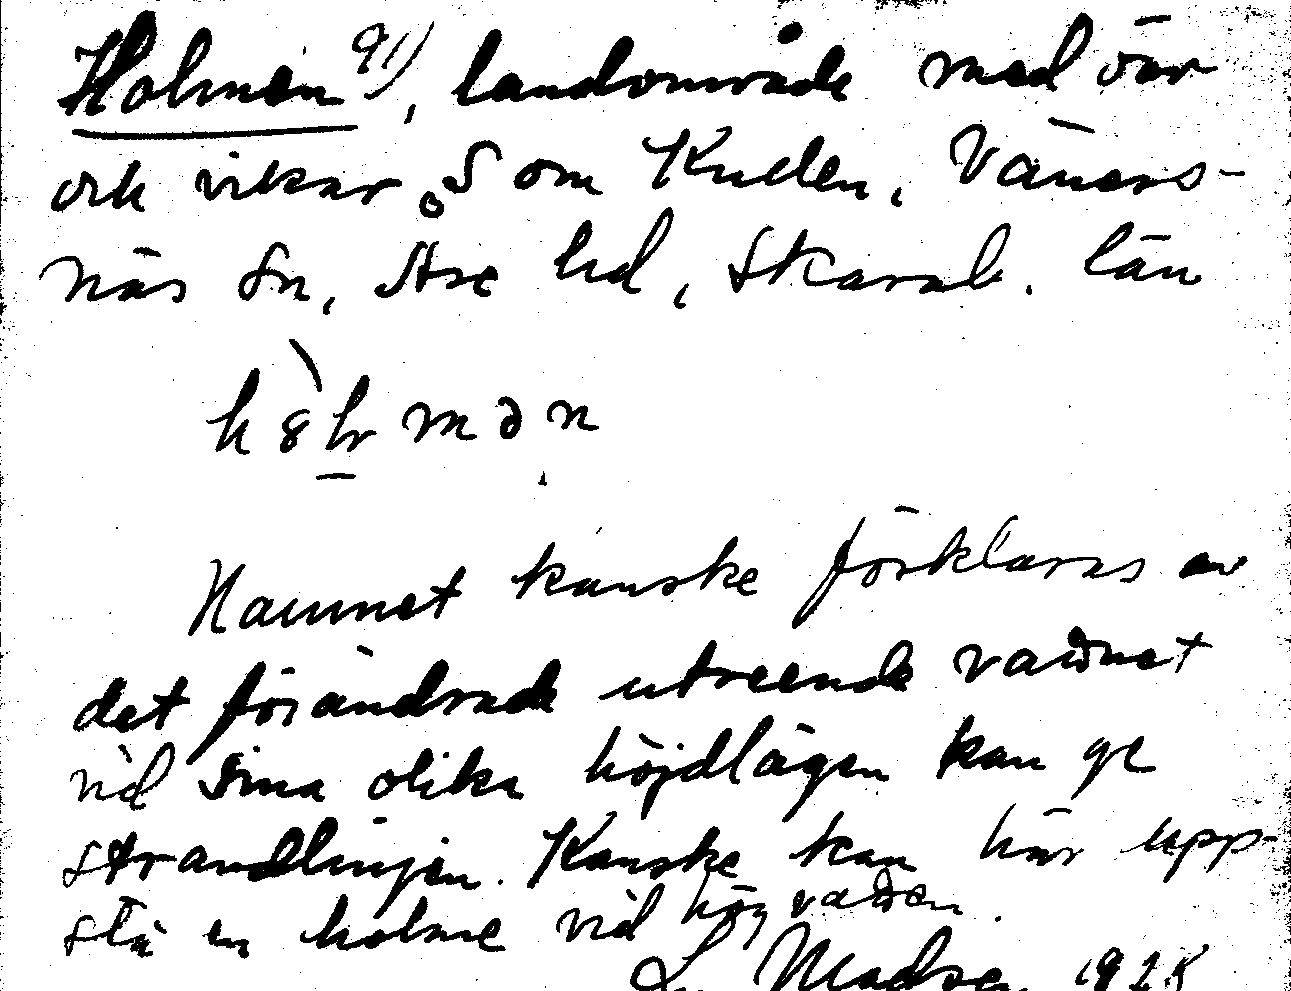 Holmen 91), landområde med öar
och vikar, S om Kuden, Väners-
näs sn, Åse hd, Skarab. län
Namnet kanske förklaras av
det förändrade utseende vattnet
vid sina olika höjdlägen kan ge
strandlinjen. Kanske kan här upp-
stå en holme vid högvatten.
L. Madsen 1925